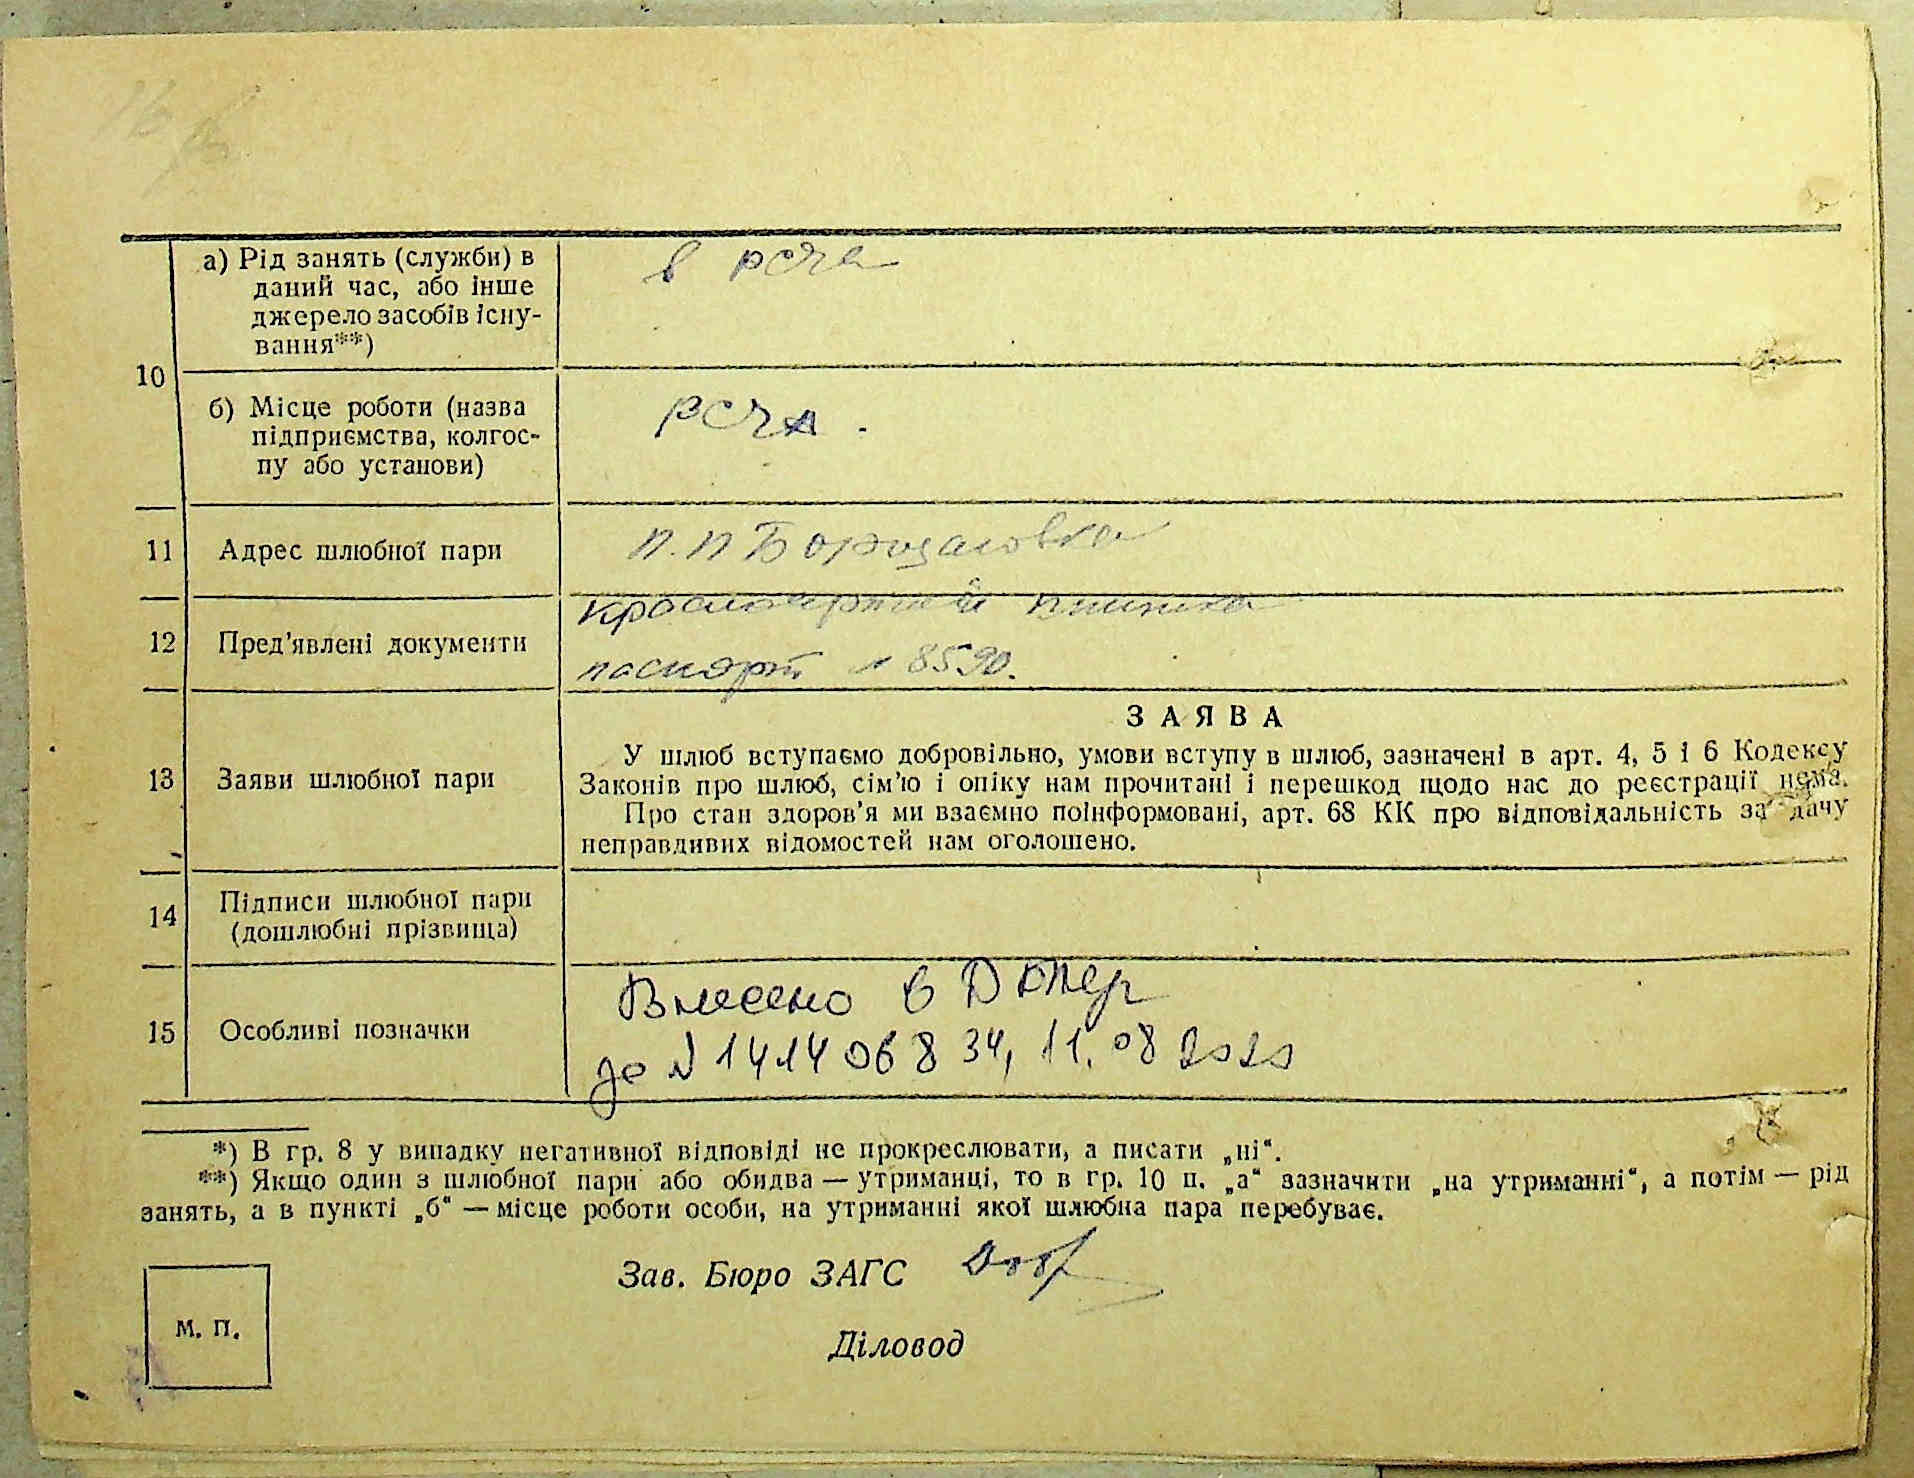 а) Рід занять (служби) в
даний час, або інше
джерело засобів існу-
вання**)
в рсча
10
б) Місце роботи (назва
підприємства, колгос-
пу або установи)
РСЧА.
11
Адрес шлюбної пари
п. п
12
Пред'явлені документи
паспорт № 8590.
13
Заяви шлюбної пари
ЗАЯВА
У шлюб вступаємо добровільно, умови вступу в шлюб, зазначені в арт. 4, 5 і 6 Кодексу
Законів про шлюб, сім'ю і опіку нам прочитані і перешкод щодо нас до реєстрації нема.
Про стан здоров'я ми взаємно поінформовані, арт. 68 КК про відповідальність за дачу
неправдивих відомостей нам оголошено.
14
Підписи шлюбної пари
(дошлюбні прізвища)
15
Особливі позначки
Внесено в
до N 1414 068 34, 11.08 2020
*) В гр. 8 у випадку негативної відповіді не прокреслювати, а писати „ні“.
**) Якщо один з шлюбної пари або обидва — утриманці, то в гр. 10 п. „а“ зазначити „на утриманні“, а потім — рід
занять, а в пункті „б“ — місце роботи особи, на утриманні якої шлюбна пара перебуває.
Зав. Бюро ЗАГС
М. П.
Діловод